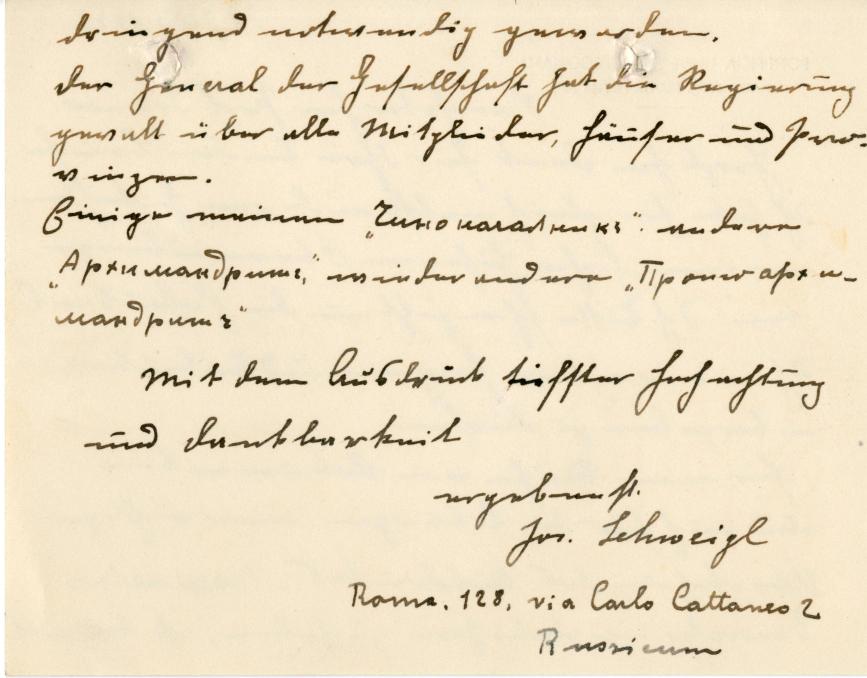 dringend notwendig geworden.
Der General der Gesellschaft hat die Regierung
gewalt über alle Mitglieder, Häuser und Pro-
vinzen.
Einige meinen „Чиноначалникъ“. andere
„Архимандритъ“, wieder andere „Протоархи-
мандритъ“
Mit dem Ausdruck tiefster Hochachtung
und Dankbarkeit
ergebenst.
Jos. Schweigl
Roma, 128, via Carlo Cattaneo 2
Russicum